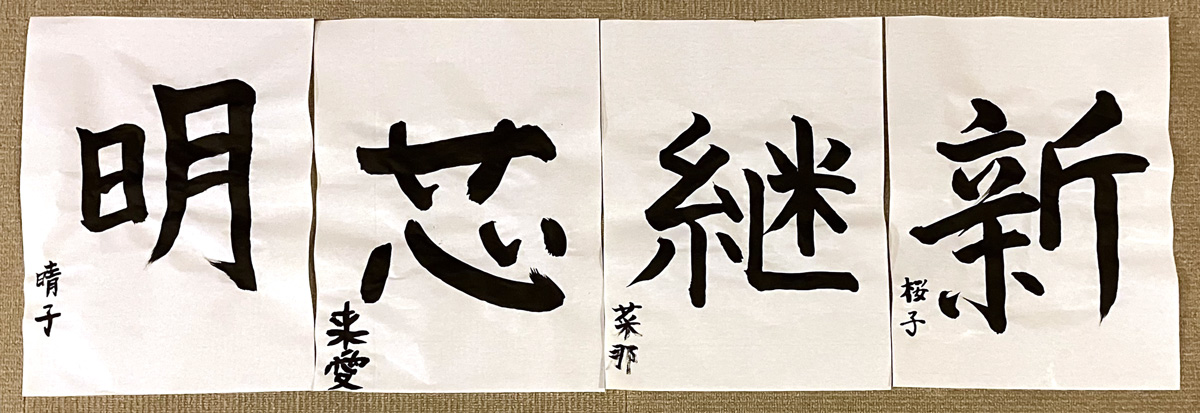 新
桜子
継
菜那
芯
来愛
明
晴子